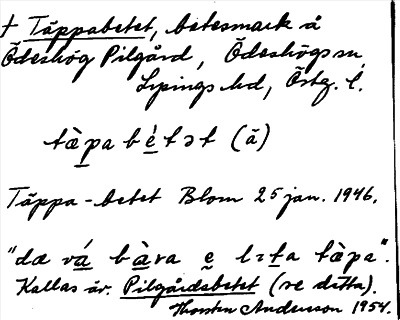 † Täppabetet, betesmark å
Ödeshög Pilgård, Ödeshögs sn,
Lysings hd, Östg. l.
tæ̀pa bét ət (ä)
Täppa-betet Blom 25 jan. 1946.
"dæ vá bàra e lɪta tæ̀pa".
Kallas äv. Pilgårdsbetet (se detta).
Thorsten Andersson 1954.